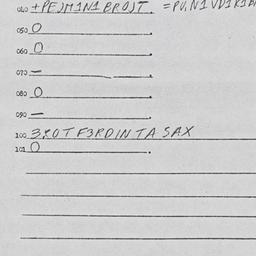 040 +PEJM1N1 BROJT. =PU,N1VD1K1
050 O
060 O
070 —
080 O
090 —
100 3ROTF3RDINTA SAX
101 O